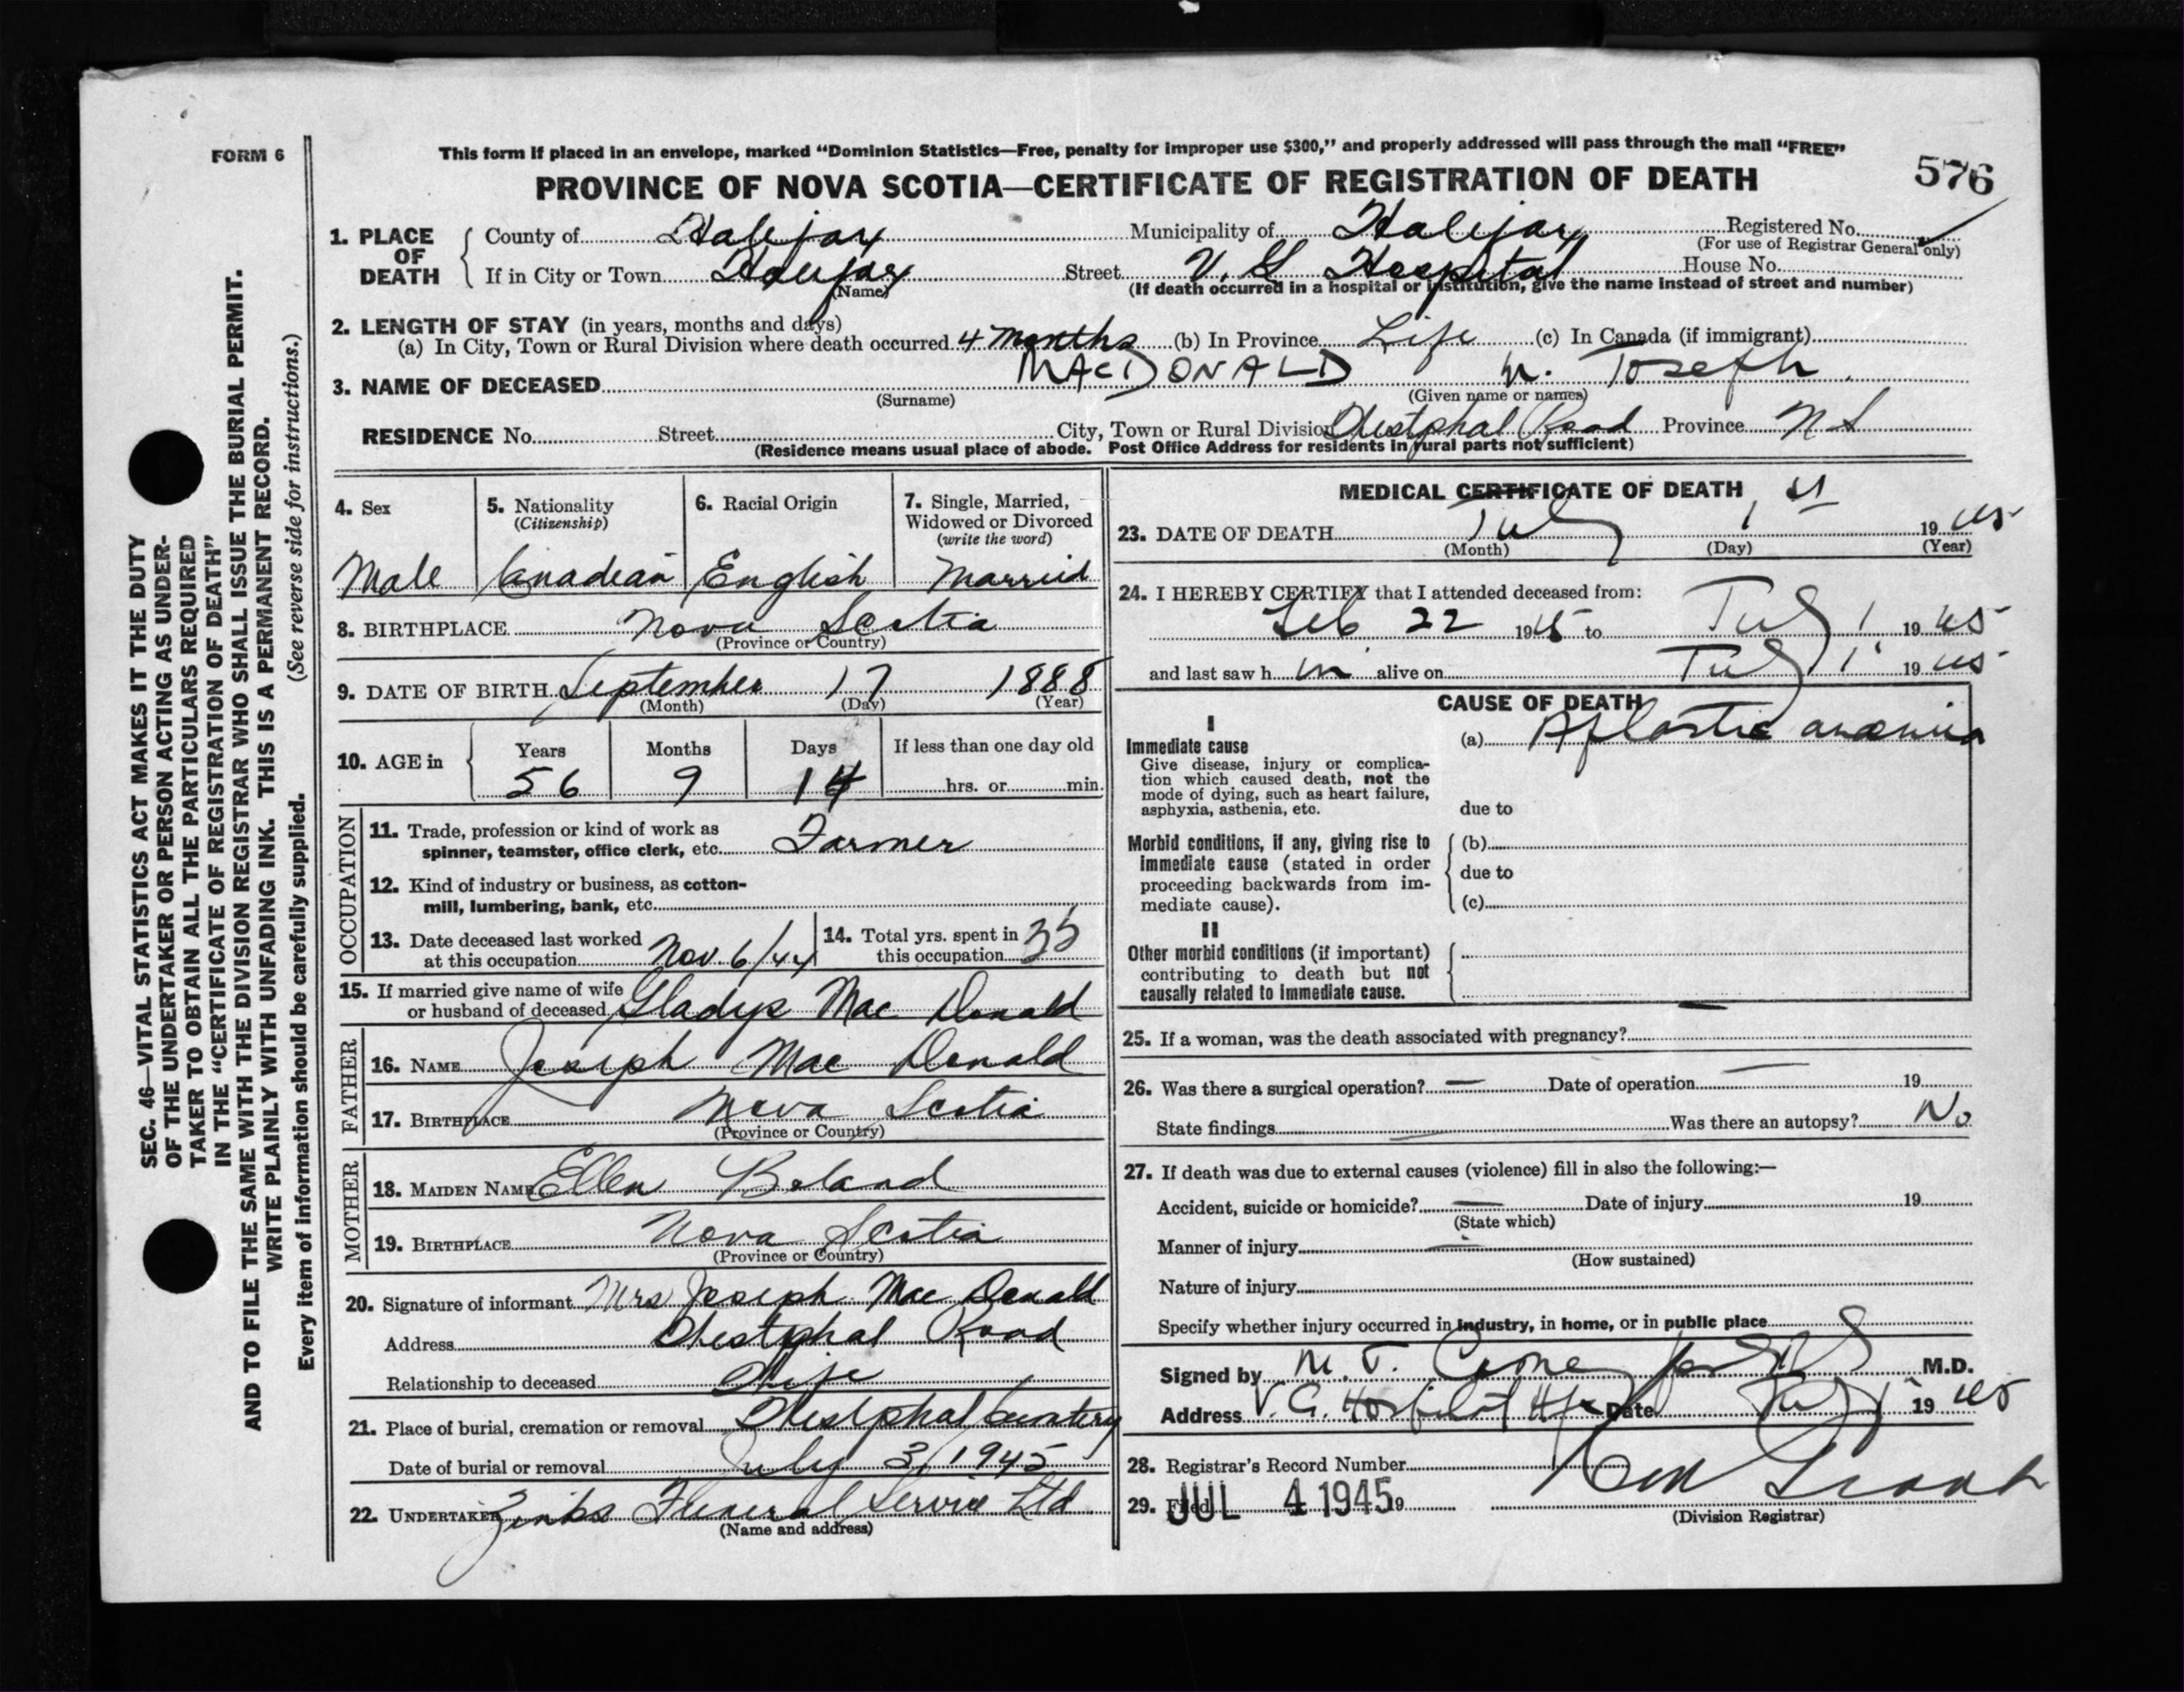 FORM 6
This form if placed in an envelope, marked “Dominion Statistics—Free, penalty for improper use $300,” and properly addressed will pass through the mail “FREE”
PROVINCE OF NOVA SCOTIA—CERTIFICATE OF REGISTRATION OF DEATH
576
1. PLACE OF DEATH
County of Halifax Municipality of Halifax Registered No.
(For use of Registrar General only)
If in City or Town Halifax Street V. G Hospital House No.
(Name) (If death occurred in a hospital or institution, give the name instead of street and number)
2. LENGTH OF STAY (in years, months and days)
(a) In City, Town or Rural Division where death occurred 4 months (b) In Province Life (c) In Canada (if immigrant)
3. NAME OF DECEASED MACDONALD W. Joseph
(Surname) (Given name or names)
RESIDENCE No. Street City, Town or Rural Division Westphal Road Province N S
(Residence means usual place of abode. Post Office Address for residents in rural parts not sufficient)
4. Sex
Male
5. Nationality
(Citizenship)
Canadian
6. Racial Origin
English
7. Single, Married,
Widowed or Divorced
(write the word)
Married
8. BIRTHPLACE Nova Scotia
(Province or Country)
9. DATE OF BIRTH September 17 1888
(Month) (Day) (Year)
10. AGE in
Years Months Days If less than one day old
56 9 14 hrs. or min.
OCCUPATION
11. Trade, profession or kind of work as
spinner, teamster, office clerk, etc. Farmer
12. Kind of industry or business, as cotton-
mill, lumbering, bank, etc.
13. Date deceased last worked
at this occupation Nov. 6/44
14. Total yrs. spent in
this occupation 35
15. If married give name of wife
or husband of deceased Gladys Mac Donald
FATHER
16. NAME Joseph Mac Donald
17. BIRTHPLACE Nova Scotia
(Province or Country)
MOTHER
18. MAIDEN NAME Ellen Boland
19. BIRTHPLACE Nova Scotia
(Province or Country)
20. Signature of informant Mrs Joseph Mac Donald
Address Westphal Road
Relationship to deceased Wife
21. Place of burial, cremation or removal Westphal Cemetery
Date of burial or removal July 3/1945
22. UNDERTAKER Zinks Funeral Service Ltd
(Name and address)
MEDICAL CERTIFICATE OF DEATH
23. DATE OF DEATH July 1 st 1945
(Month) (Day) (Year)
24. I HEREBY CERTIFY that I attended deceased from:
Feb 22 1945 to July 1 1945
and last saw h im alive on July 1 1945
CAUSE OF DEATH
I
Immediate cause
Give disease, injury or complica-
tion which caused death, not the
mode of dying, such as heart failure,
asphyxia, asthenia, etc.
(a) Aplastic anaemia
due to
Morbid conditions, if any, giving rise to
immediate cause (stated in order
proceeding backwards from im-
mediate cause).
(b)
due to
(c)
II
Other morbid conditions (if important)
contributing to death but not
causally related to immediate cause.
25. If a woman, was the death associated with pregnancy? —
26. Was there a surgical operation? — Date of operation — 19
State findings — Was there an autopsy? No
27. If death was due to external causes (violence) fill in also the following:—
Accident, suicide or homicide? — Date of injury 19
(State which)
Manner of injury —
(How sustained)
Nature of injury
Specify whether injury occurred in industry, in home, or in public place
Signed by M. T. M.D.
Address V. G. Hospital Hfx Date July 1 1945
28. Registrar's Record Number
29. Filed JUL 4 1945 19
Grant
(Division Registrar)
SEC. 46—VITAL STATISTICS ACT MAKES IT THE DUTY
OF THE UNDERTAKER OR PERSON ACTING AS UNDER-
TAKER TO OBTAIN ALL THE PARTICULARS REQUIRED
IN THE “CERTIFICATE OF REGISTRATION OF DEATH”
AND TO FILE THE SAME WITH THE DIVISION REGISTRAR WHO SHALL ISSUE THE BURIAL PERMIT.
WRITE PLAINLY WITH UNFADING INK. THIS IS A PERMANENT RECORD.
Every item of information should be carefully supplied. (See reverse side for instructions.)